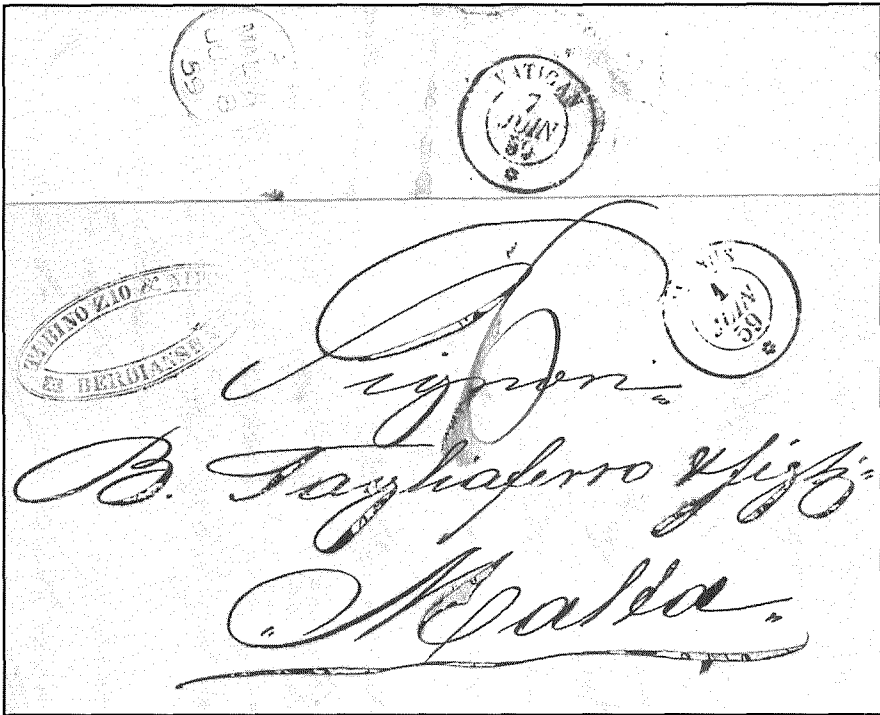 MALTA
JU 8
59
VATICAN
7
JUIN
59
1
JUIN
59
ZIO &
BERDIANSK
Signori
B. Tagliaferro & figli
Malta